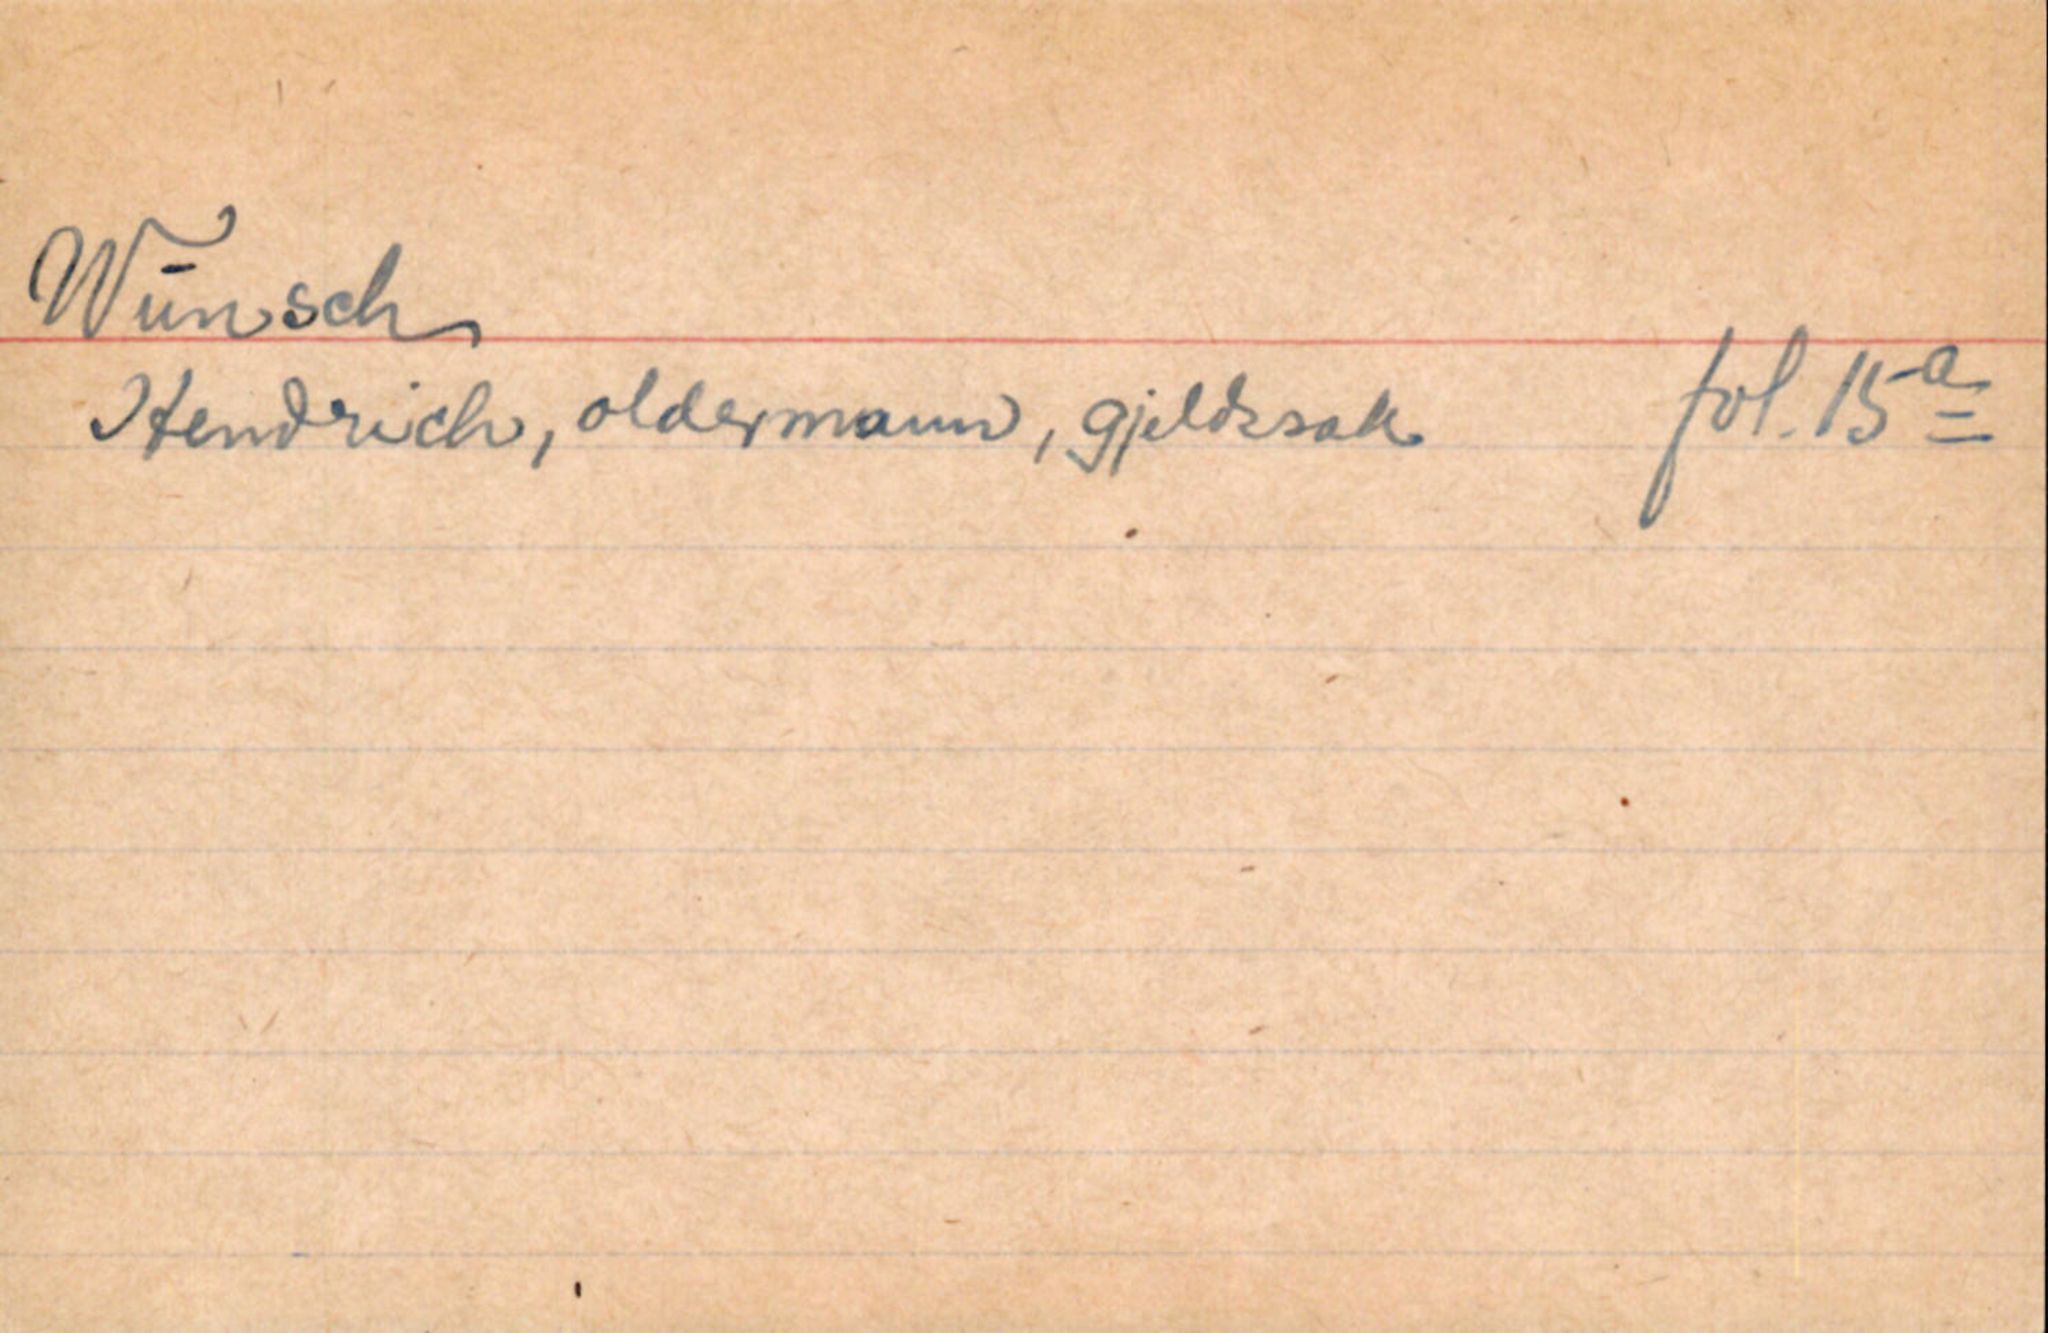 Wünsch
Hendrich, oldermann, gjeldssak fol. 15a